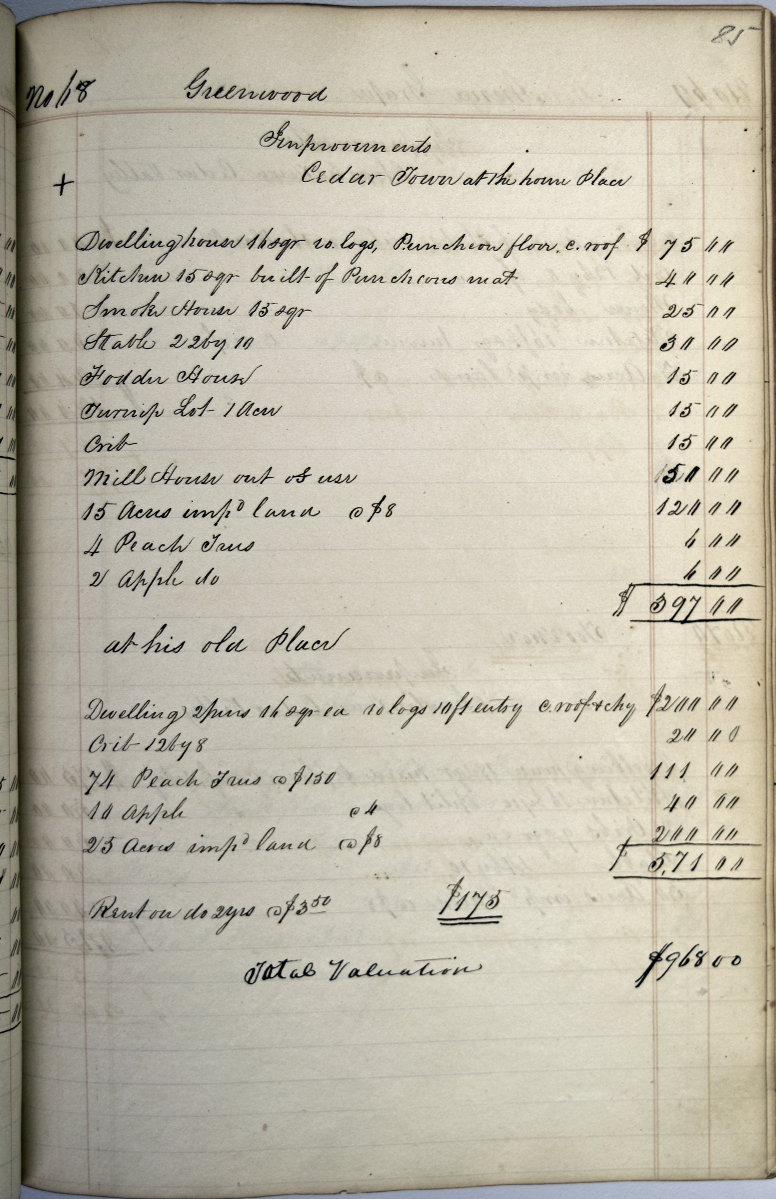 85
No 68 Greenwood
Improvements
+ Cedar Town at the home Place
Dwelling house 16 sqr ro. logs, Puncheon floor, c. roof $ 75 00
Kitchen 15 sqr built of Puncheons mat 40 00
Smoke House 15 sqr 25 00
Stable 22 by 10 30 00
Fodder House 15 00
Turnip Lot 1 Acre 15 00
Crib 15 00
Mill House out of use 50 00
15 Acres imp<sup>d</sup> land @ $8 120 00
4 Peach Trees 6 00
2 Apple do 6 00
$ 397 00
at his old Place
Dwelling 2 pens 16 sqr ea ro logs 10 ft entry c. roof & chy $200 00
Crib 12 by 8 20 00
74 Peach Trees @ $150 111 00
10 Apple @ 4 40 00
25 Acres imp<sup>d</sup> land @ $8 200 00
$ 571 00
Rent on do 2 yrs @ $3 50 $175
Total Valuation $968 00